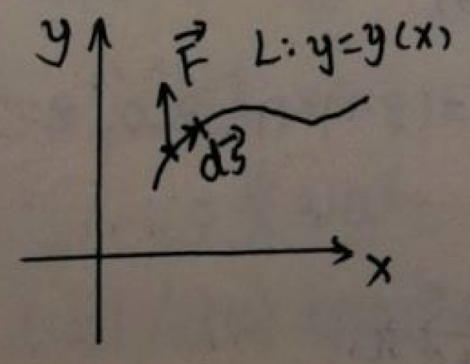 y F⃗ L: y=y(x)
ds⃗
x